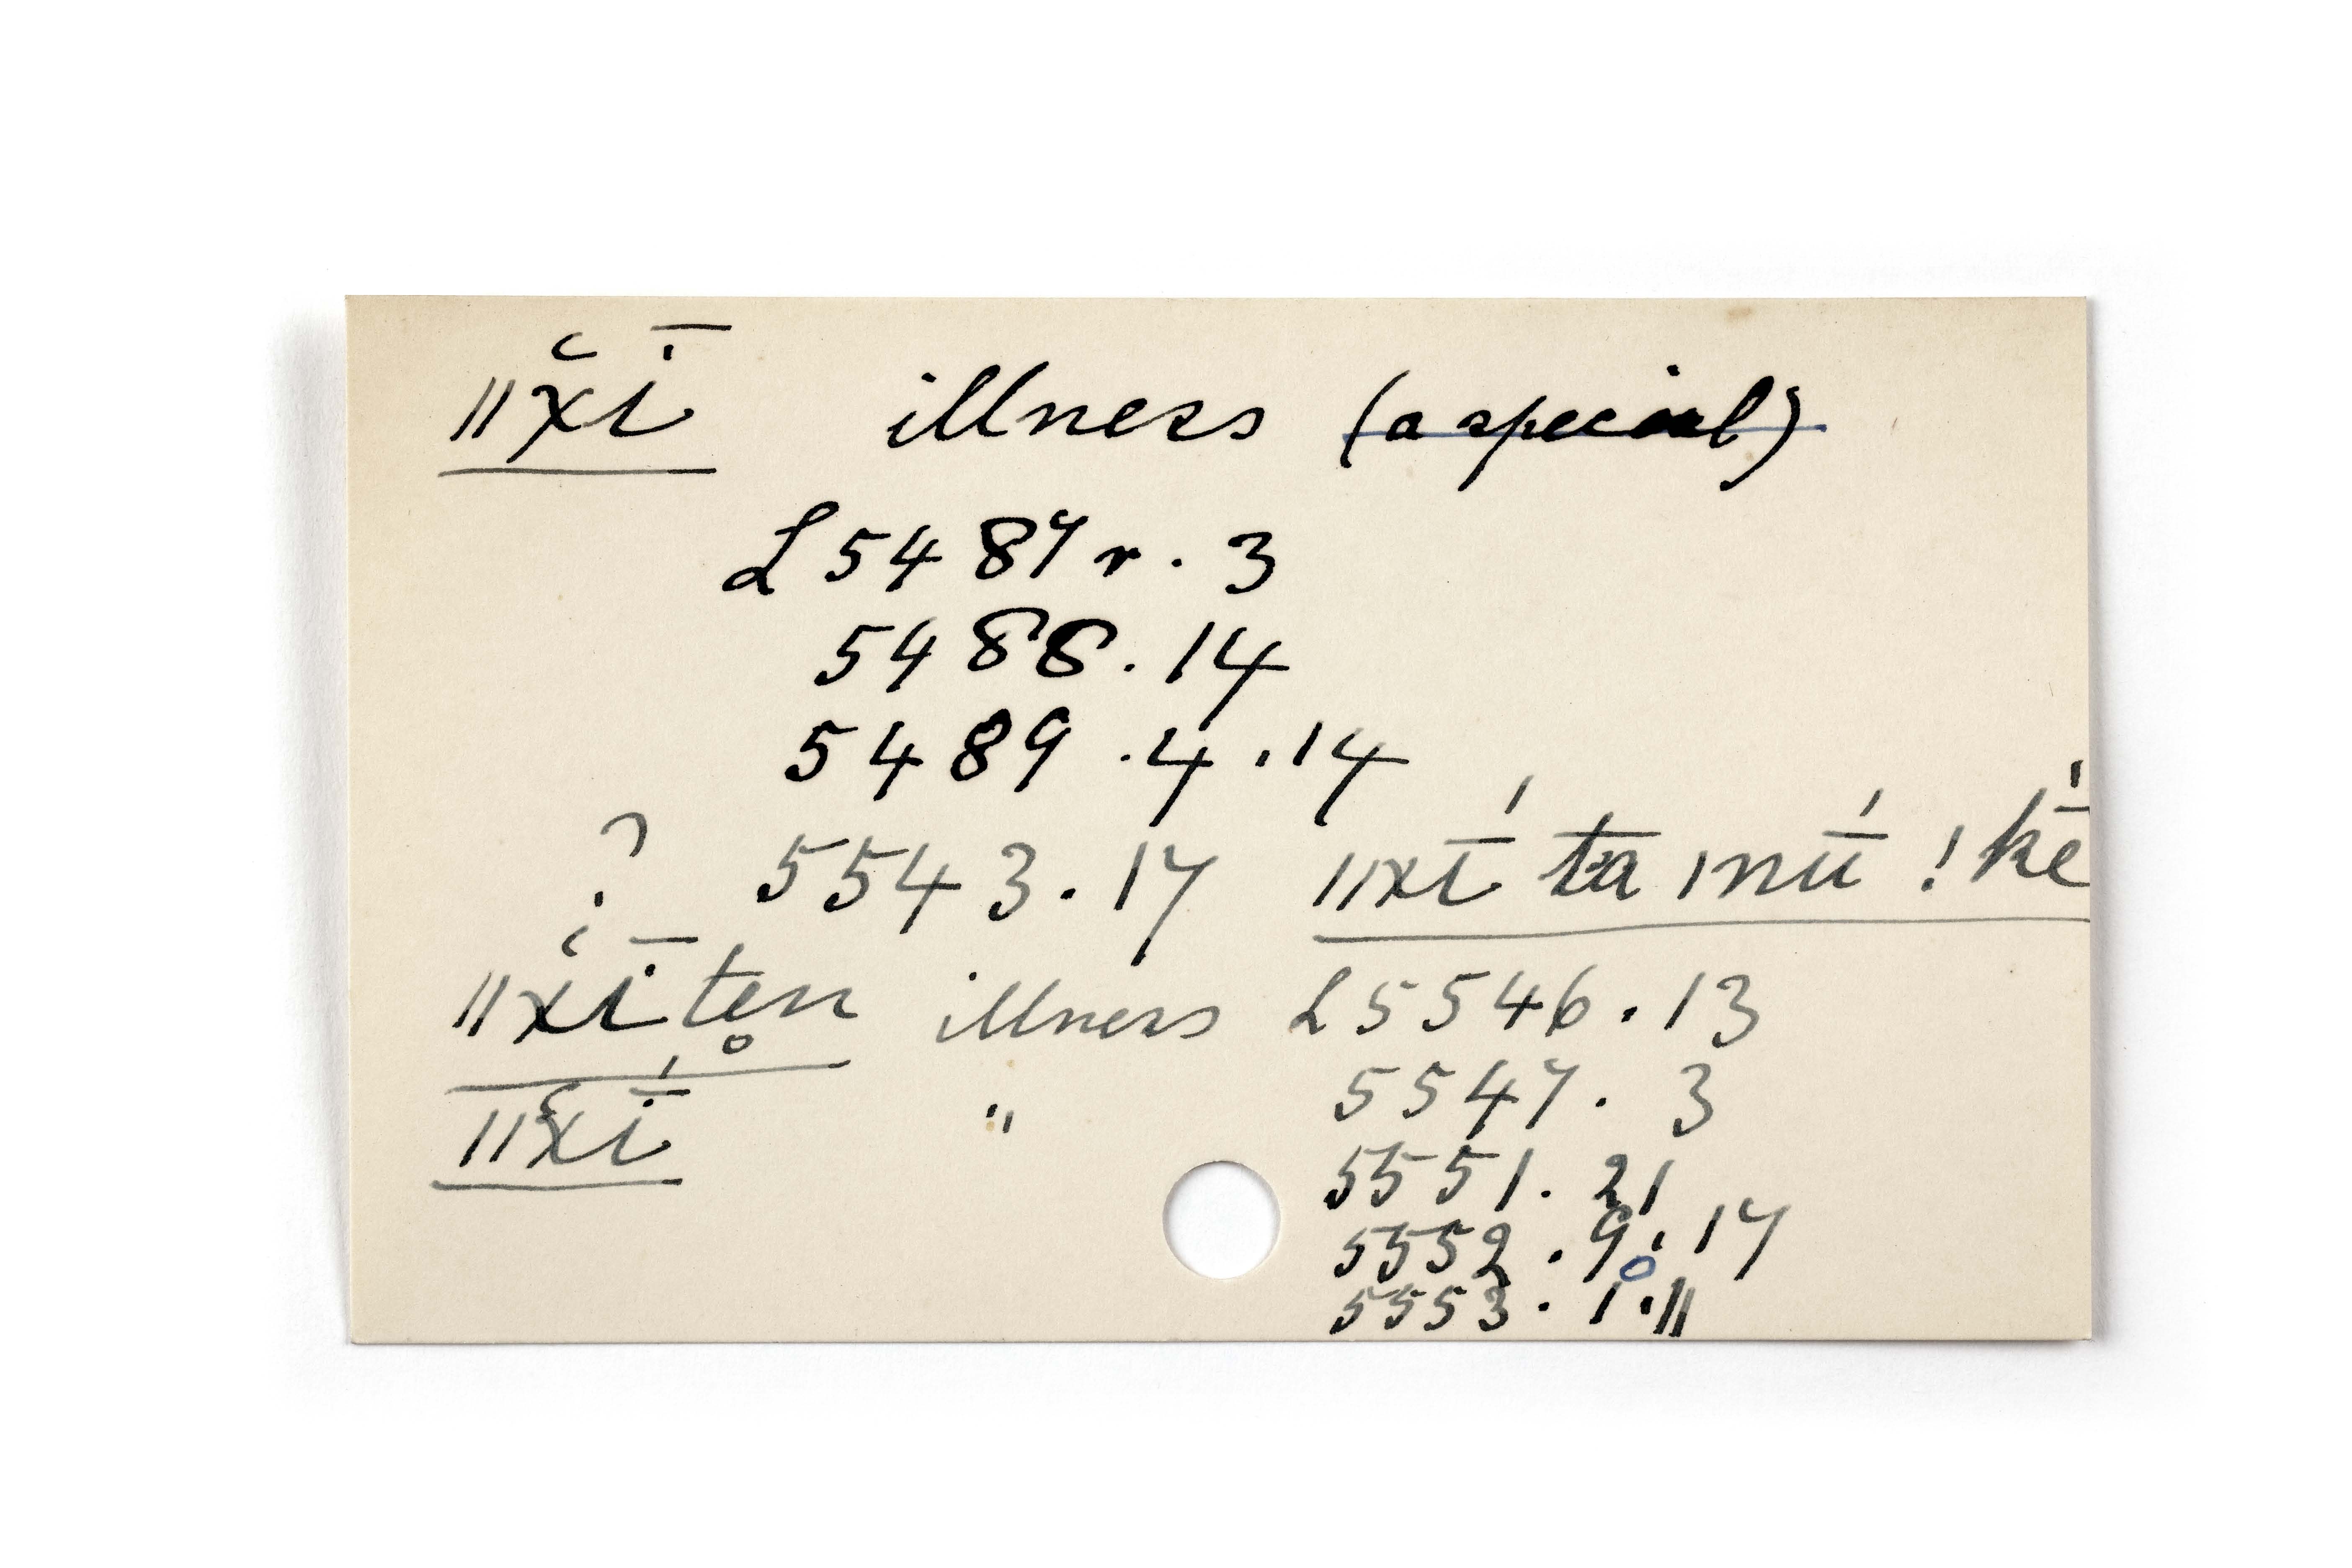 ǁχ̆ī illness (a special)
L 5487 r. 3
5488. 14
5489 .4 .14
? 5543. 17 ǁxī́ tā ǀnū́ !kḗ
ǁxī ten̥ illness L 5546. 13
5547. 3
ǁχ̆ī́ " 5551. 21
5552 . 9. 17
5553. 1. 11